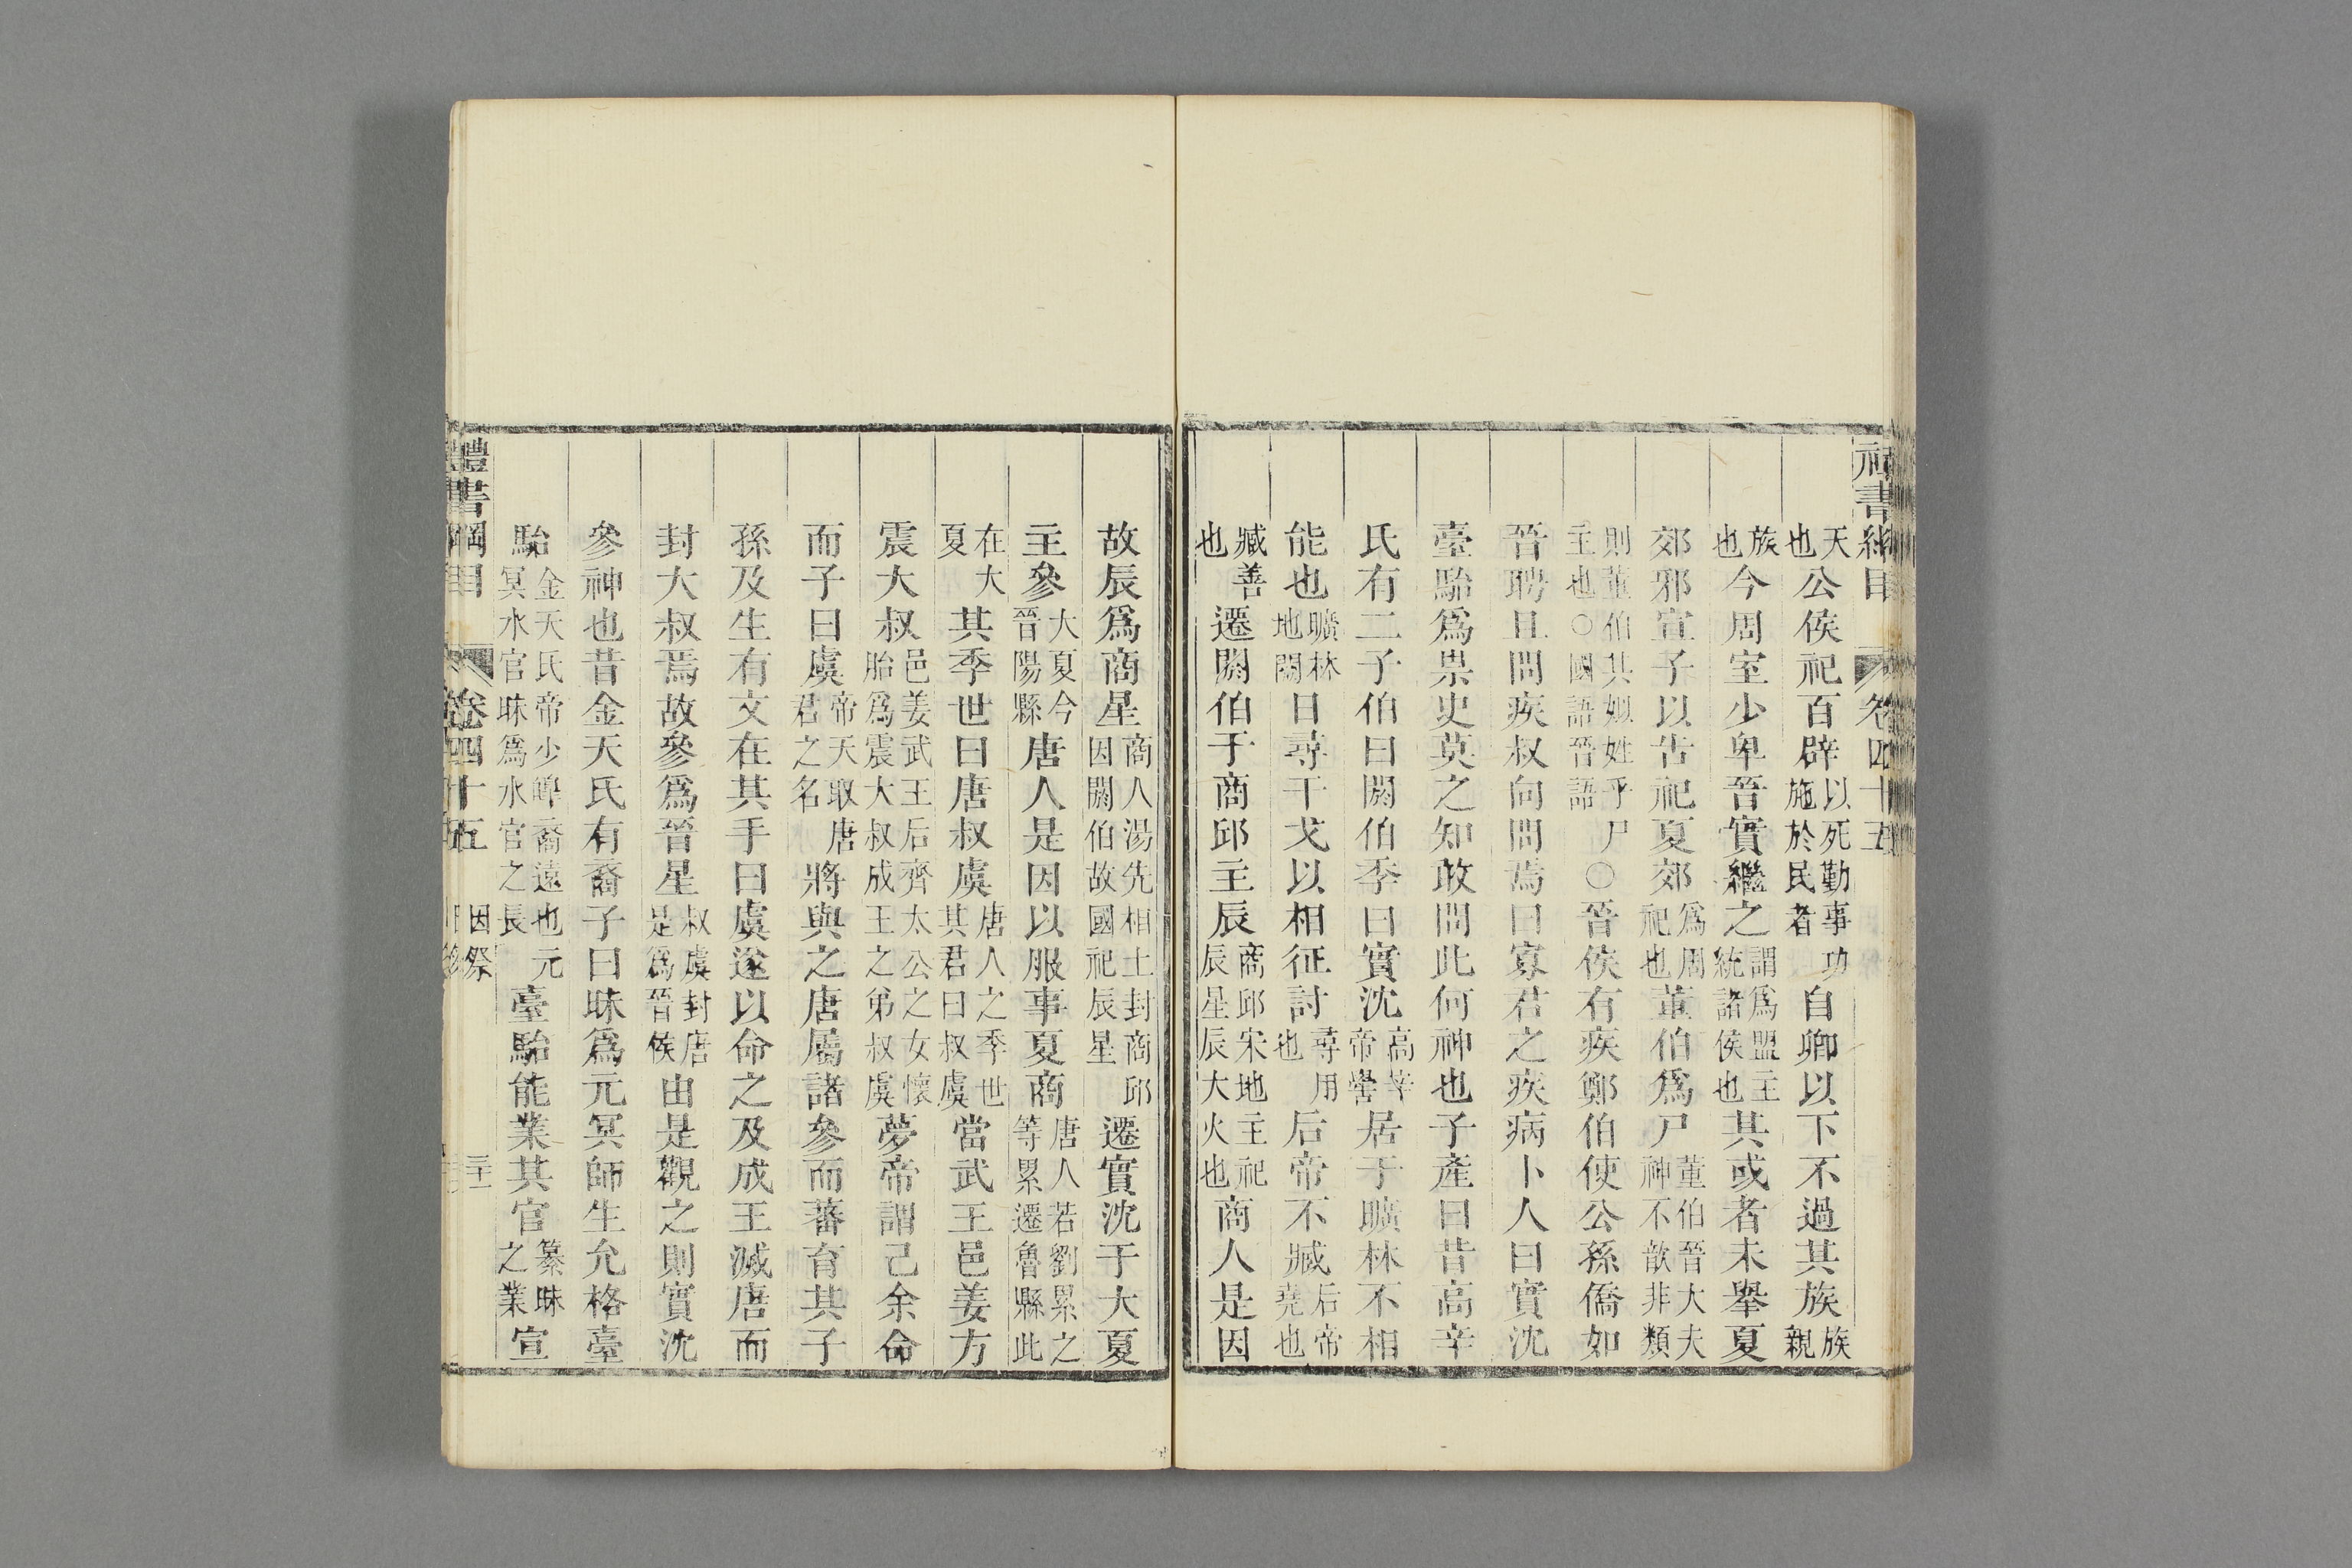 天也公侯祀百辟以死勤事功施於民者自卿以下不過其族族親
族也今周室少卑晉實繼之謂爲盟主統諸侯也其或者未舉夏
郊邪宣子以告祀夏郊爲周祀也董伯爲尸董伯晉大夫神不歆非類
則董伯其姒姓乎尸主也○國語晉語○晉侯有疾鄭伯使公孫僑如
晉聘且問疾叔向問焉曰寡君之疾病卜人曰實沈
臺駘爲祟史莫之知敢問此何神也子產曰昔高辛
氏有二子伯曰閼伯季曰實沈高辛帝嚳居于曠林不相
能也曠林地闕日尋干戈以相征討尋用也后帝不臧后帝堯也
臧善也遷閼伯于商邱主辰商邱宋地主祀辰星辰大火也商人是因
故辰爲商星商人湯先相土封商邱因閼伯故國祀辰星遷實沈于大夏
主參大夏今晉陽縣唐人是因以服事夏商唐人若劉累之等累遷魯縣此
在大夏其季世曰唐叔虞唐人之季世其君曰叔虞當武王邑姜方
震大叔邑姜武王后齊太公之女懷胎爲震大叔成王之弟叔虞夢帝謂己余命
而子曰虞帝天取唐君之名將與之唐屬諸參而蕃育其子
孫及生有文在其手曰虞遂以命之及成王滅唐而
封大叔焉故參爲晉星叔虞封唐是爲晉侯由是觀之則實沈
參神也昔金天氏有裔子曰昧爲元冥師生允格臺
駘金天氏帝少皞裔遠也元冥水官昧爲水官之長臺駘能業其官纂昧之業宣
禮書綱目 卷四十五 因祭